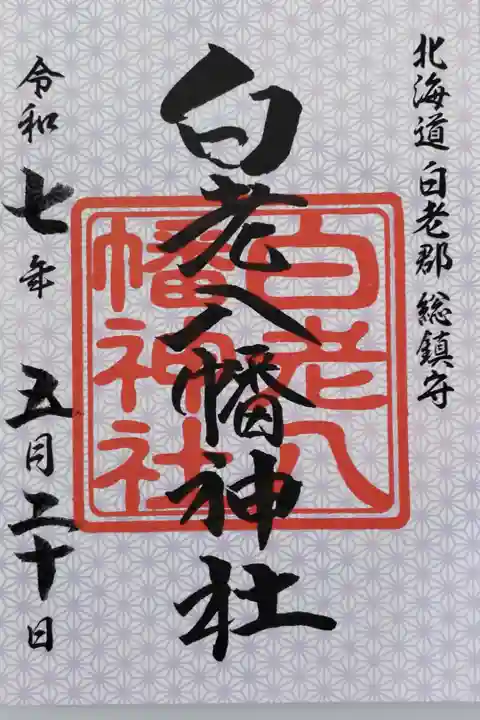 北海道 白老郡 総鎮守
白老八幡神社
白老八
幡神社
令和七年 五月二十日